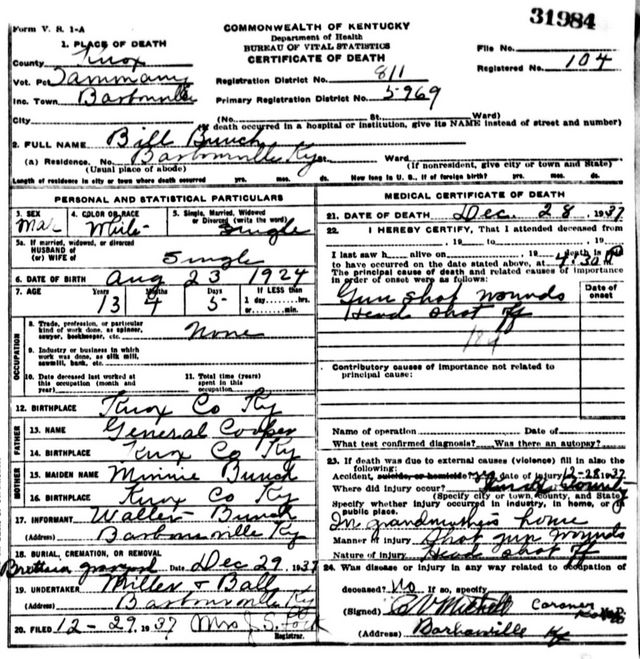 31984
Form V. S. 1-A
COMMONWEALTH OF KENTUCKY
Department of Health
BUREAU OF VITAL STATISTICS
CERTIFICATE OF DEATH
File No.
Registered No. 104
1. PLACE OF DEATH
County Knox
Vot. Pct Tammany
Inc. Town Barbourville
City
Registration District No. 811
Primary Registration District No. 5969
(No. St. Ward)
(If death occurred in a hospital or institution, give its NAME instead of street and number)
2. FULL NAME Bill Bunch
(a) Residence. No. Barbourville Ky St. Ward
(Usual place of abode) (If nonresident, give city or town and State)
Length of residence in city or town where death occurred yrs. mos. ds. How long in U. S., if of foreign birth? yrs. mos. ds.
PERSONAL AND STATISTICAL PARTICULARS
3. SEX 4. COLOR OR RACE 5. Single, Married, Widowed or Divorced (write the word)
White Single
5a. If married, widowed, or divorced
HUSBAND of
(or) WIFE of Single
6. DATE OF BIRTH Aug 23 1924
7. AGE Years Months Days If LESS than
13 4 5 1 day......hrs.
or......min.
OCCUPATION
8. Trade, profession, or particular
kind of work done, as spinner,
sawyer, bookkeeper, etc. None
9. Industry or business in which
work was done, as silk mill,
sawmill, bank, etc.
10. Date deceased last worked at
this occupation (month and
year)
11. Total time (years)
spent in this
occupation
12. BIRTHPLACE Knox Co Ky
FATHER
13. NAME General Cooper
14. BIRTHPLACE Knox Co Ky
MOTHER
15. MAIDEN NAME Minnie Bunch
16. BIRTHPLACE Knox Co Ky
17. INFORMANT Walter Bunch
(Address) Barbourville Ky
18. BURIAL, CREMATION, OR REMOVAL
graveyard Date Dec 29, 1937
19. UNDERTAKER Miller & Ball
(Address) Barbourville Ky
20. FILED 12-29, 1937 Mrs J. S.
Registrar.
MEDICAL CERTIFICATE OF DEATH
21. DATE OF DEATH Dec. 28, 1937
22. I HEREBY CERTIFY, That I attended deceased from
, 19 to , 19
I last saw h alive on , 19 death is said
to have occurred on the date stated above, at 4:30 m.
The principal cause of death and related causes of importance
in order of onset were as follows:
Date of onset
Gun shot wounds
Head shot off
Contributory causes of importance not related to
principal cause:
Name of operation Date of
What test confirmed diagnosis? Was there an autopsy?
23. If death was due to external causes (violence) fill in also the
following:
Accident, suicide, or homicide? Date of injury 12-28 1937
Where did injury occur?
(Specify city or town, county, and State)
Specify whether injury occurred in industry, in home, or in
public place.
In grandmothers home
Manner of injury Shot gun wounds
Nature of injury Head shot off
24. Was disease or injury in any way related to occupation of
deceased? No If so, specify
(Signed) Mitchell Coroner
(Address) Barbourville Ky